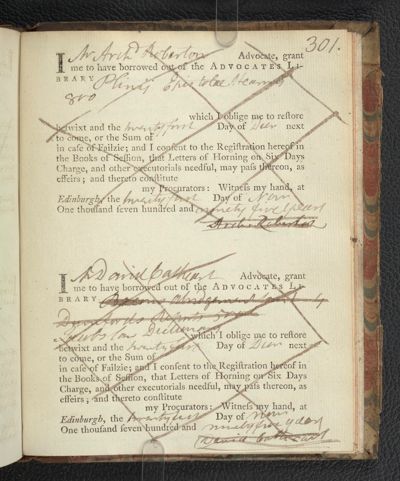 301.
I Mr Archd Roberton Advocate, grant
me to have borrowed out of the ADVOCATES LI-
BRARY Plinii Epistolae Hearnii
8vo
which I oblige me to reſtore
betwixt and the twenty first Day of Decr next
to come, or the Sum of
in caſe of Failzie; and I conſent to the Regiſtration hereof in
the Books of Seſſion, that Letters of Horning on Six Days
Charge, and other executorials needful, may paſs thereon, as
effeirs; and thereto conſtitute
my Procurators: Witneſs my hand, at
Edinburgh, the twenty first Day of Novr
One thouſand ſeven hundred and ninety five years
Archd Roberton
I Mr David Cathcart Advocate, grant
me to have borrowed out of the ADVOCATES LI-
BRARY Abridgement 4
Law Dictionary
which I oblige me to reſtore
betwixt and the twenty first Day of Decr next
to come, or the Sum of
in caſe of Failzie; and I conſent to the Regiſtration hereof in
the Books of Seſſion, that Letters of Horning on Six Days
Charge, and other executorials needful, may paſs thereon, as
effeirs; and thereto conſtitute
my Procurators: Witneſs my hand, at
Edinburgh, the twenty first Day of Novr
One thouſand ſeven hundred and ninety five years
David Cathcart